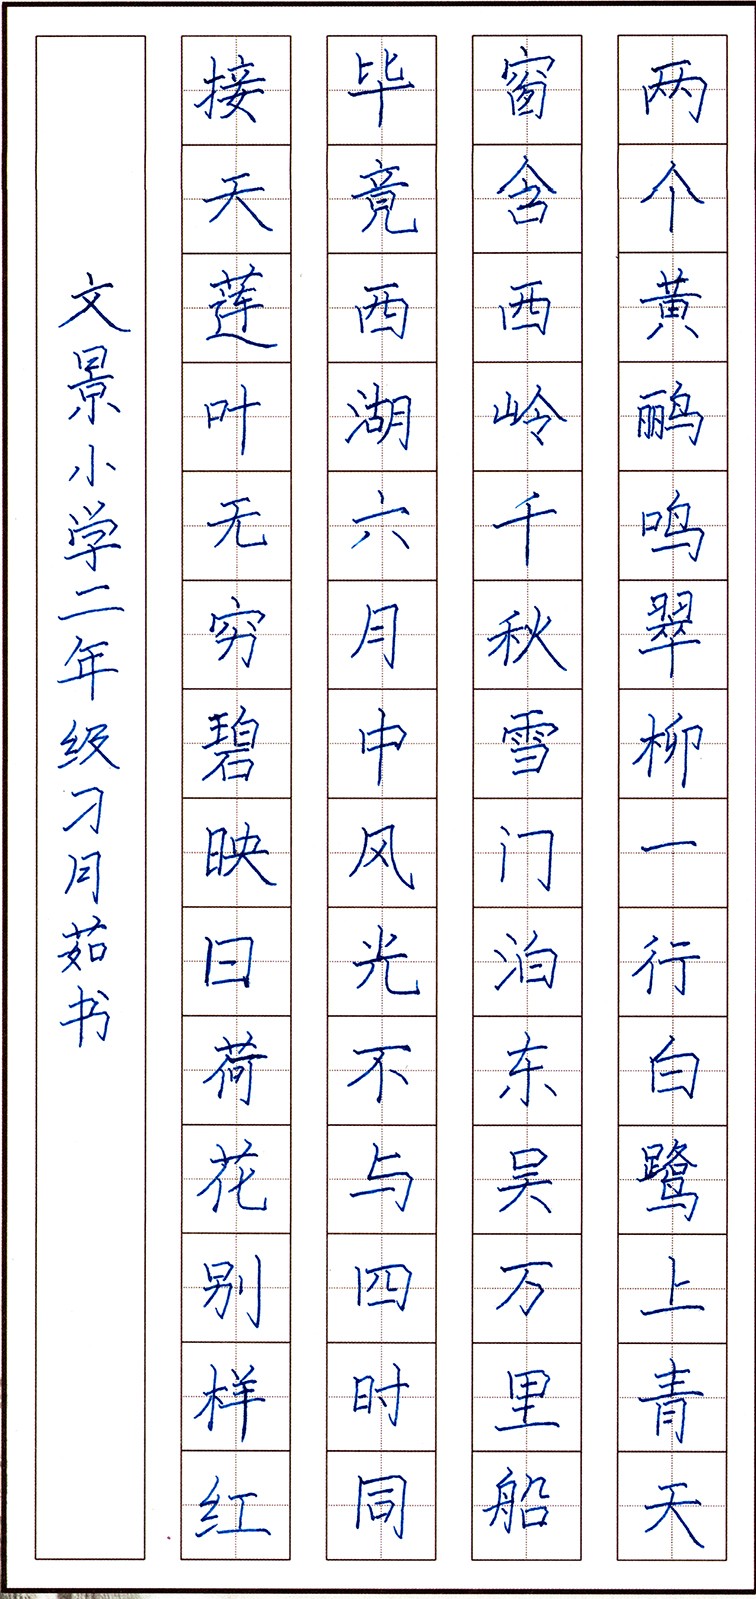 两个黄鹂鸣翠柳一行白鹭上青天
窗含西岭千秋雪门泊东吴万里船
毕竟西湖六月中风光不与四时同
接天莲叶无穷碧映日荷花别样红
文景小学二年级刁月茹书